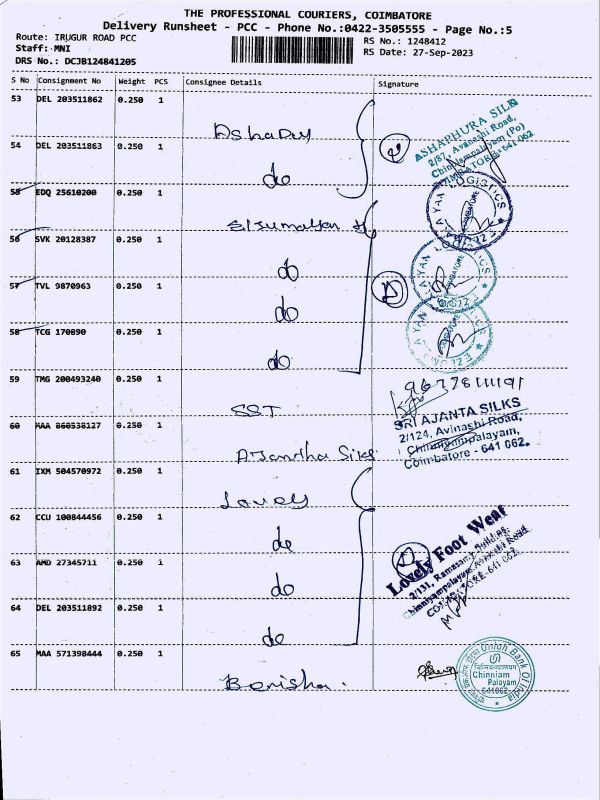 THE PROFESSIONAL COURIERS, COIMBATORE
Delivery Runsheet - PCC - Phone No.:0422-3505555 - Page No.:5
Route: IRUGUR ROAD PCC
Staff: MNI
DRS No.: DCJB124841205
RS No.: 1248412
RS Date: 27-Sep-2023
S No Consignment No Weight PCS Consignee Details Signature
53 DEL 203511862 0.250 1
54 DEL 203511863 0.250 1 do
55 EDQ 25610200 0.250 1
56 SVK 20128387 0.250 1 do
57 TVL 9870963 0.250 1 do
58 TCG 170890 0.250 1 do
59 TMG 200493240 0.250 1 SST
60 MAA 860538127 0.250 1 Ajantha Silks
61 IXM 504570972 0.250 1 Lovely
62 CCU 100844456 0.250 1 do
63 AMD 27345711 0.250 1 do
64 DEL 203511892 0.250 1 do
65 MAA 571398444 0.250 1 Berisha.
ASHAPHURA SILK
2/87, Avanashi Road,
Chinniyampalayam (Po)
COIMBATORE- 641 062
LOGISTICS
COIMBATORE
SRI AJANTA SILKS
2/124, Avinashi Road,
Chinniyampalayam,
Coimbatore - 641 062.
Lovely Foot Wear
2/131, Ramasamy Building,
Chinniyampalayam, Avinashi Road
COIMBATORE-641 062.
Union Bank Of India
Chinniam
Palayam
641062